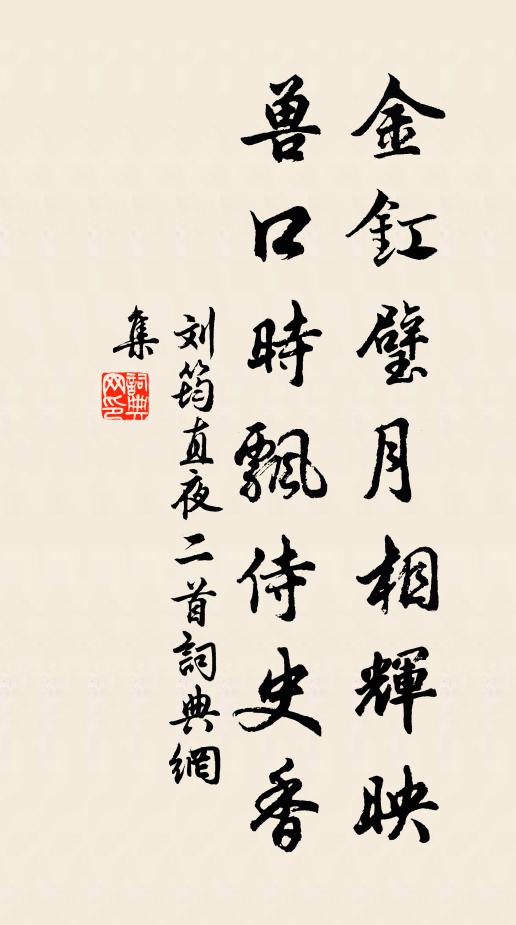 金釭璧月相輝映
兽口時飄侍史香
刘筠直夜二首詞典網
集
詞典
网印